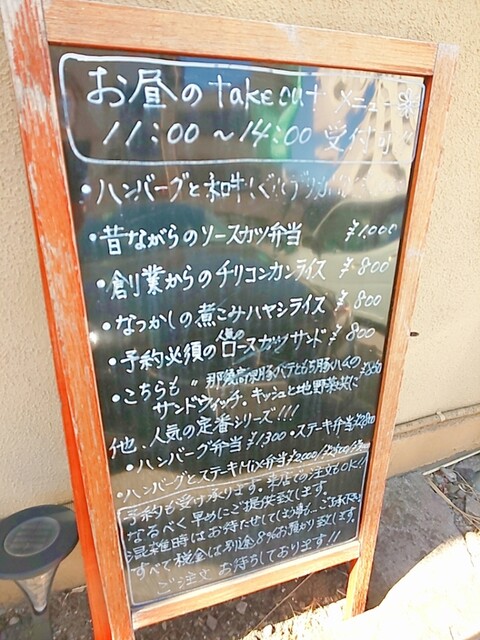 お昼のtakeout メニュー
11:00～14:00 受付可
・ハンバーグと和牛
・昔ながらのソースカツ弁当 ¥1,000
・創業からのチリコンカンライス ¥800
・なつかしの煮こみハヤシライス ¥800
・予約必須の人気のロースカツサンド ¥800
・こちらも〃 那須高原豚パテともち豚ハムの
サンドウィッチ・キッシュと地野菜
他、人気の定番シリーズ!!!
・ハンバーグ弁当 ¥1300 ・ステーキ弁当
・ハンバーグとステーキMix弁当 ¥2000
予約も受け承ります。来店での注文もOK!!
なるべく早めにご提供致します
混雑時はお待たせしてしまう事も…ご了承下さい
すべて税金は別途8%お預かり致します。
ご注文 お待ちしております!!